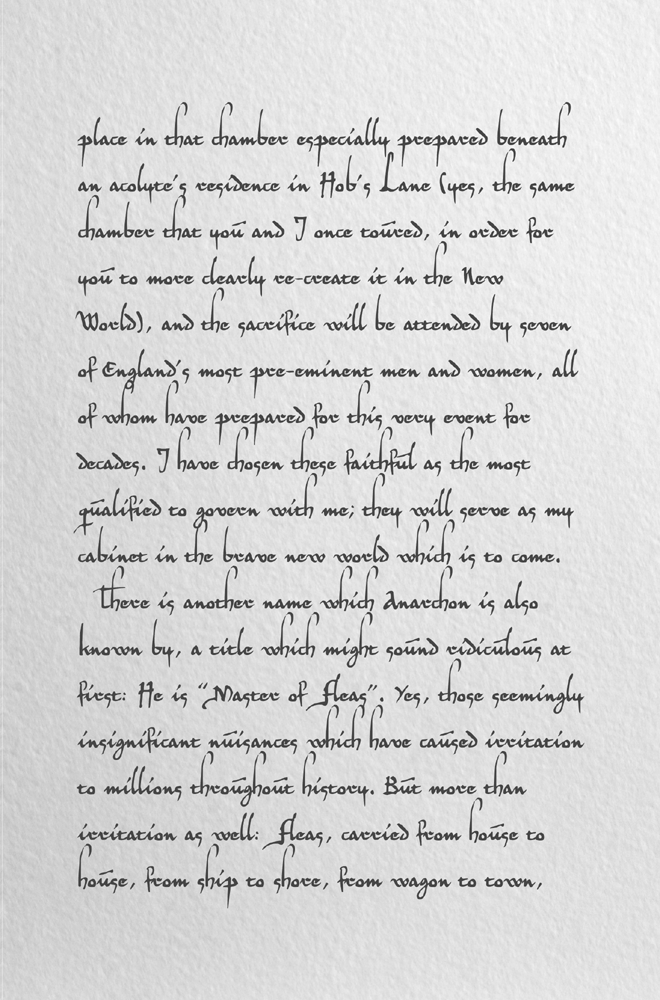 place in that chamber especially prepared beneath
an acolyte's residence in Hob's Lane (yes, the same
chamber that you and I once toured, in order for
you to more clearly re-create it in the New
World), and the sacrifice will be attended by seven
of England's most pre-eminent men and women, all
of whom have prepared for this very event for
decades. I have chosen these faithful as the most
qualified to govern with me; they will serve as my
cabinet in the brave new world which is to come.
There is another name which Anarchon is also
known by, a title which might sound ridiculous at
first: He is "Master of Fleas". Yes, those seemingly
insignificant nuisances which have caused irritation
to millions throughout history. But more than
irritation as well: Fleas, carried from house to
house, from ship to shore, from wagon to town,